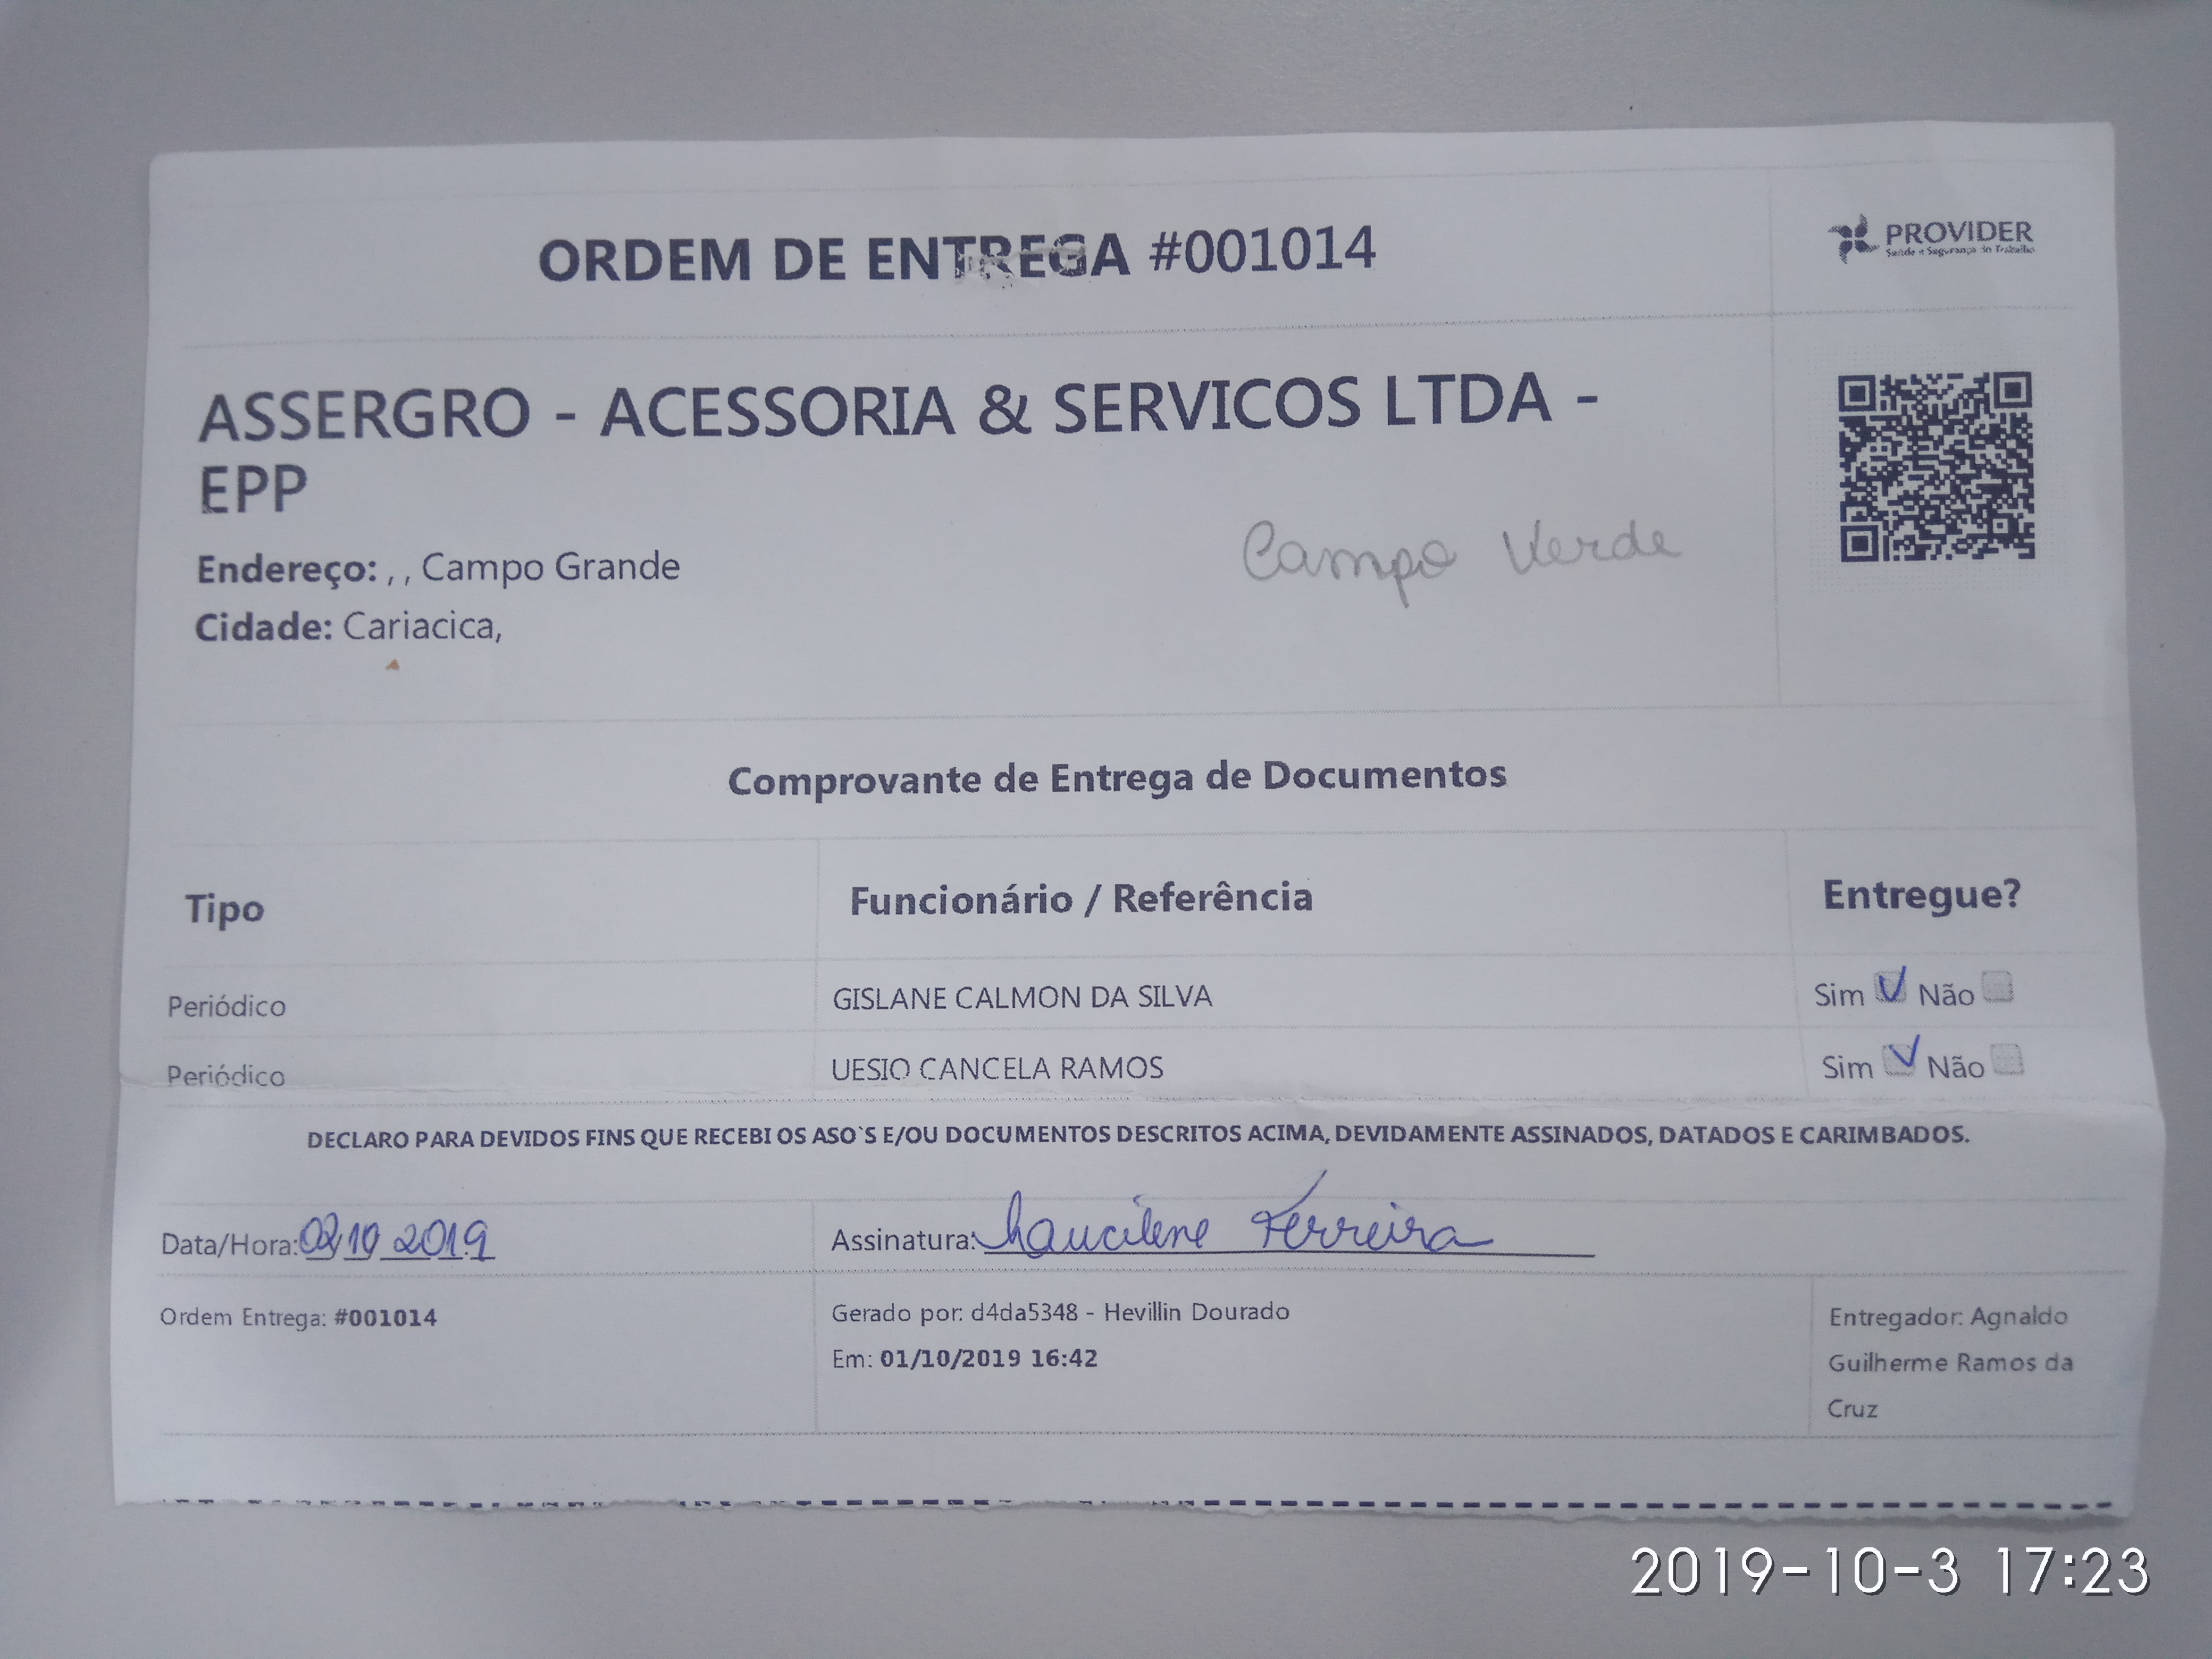 ORDEM DE ENTREGA #001014
PROVIDER
Saúde e Segurança do Trabalho
ASSERGRO - ACESSORIA & SERVICOS LTDA -
EPP
Campo Verde
Endereço: , , Campo Grande
Cidade: Cariacica,
Comprovante de Entrega de Documentos
Tipo Funcionário / Referência Entregue?
Periódico GISLANE CALMON DA SILVA Sim Não
Periódico UESIO CANCELA RAMOS Sim Não
DECLARO PARA DEVIDOS FINS QUE RECEBI OS ASO`S E/OU DOCUMENTOS DESCRITOS ACIMA, DEVIDAMENTE ASSINADOS, DATADOS E CARIMBADOS.
Data/Hora: 02/10 2019 Assinatura: Laucilene Ferreira
Ordem Entrega: #001014
Gerado por: d4da5348 - Hevillin Dourado
Em: 01/10/2019 16:42
Entregador: Agnaldo
Guilherme Ramos da
Cruz
2019-10-3 17:23